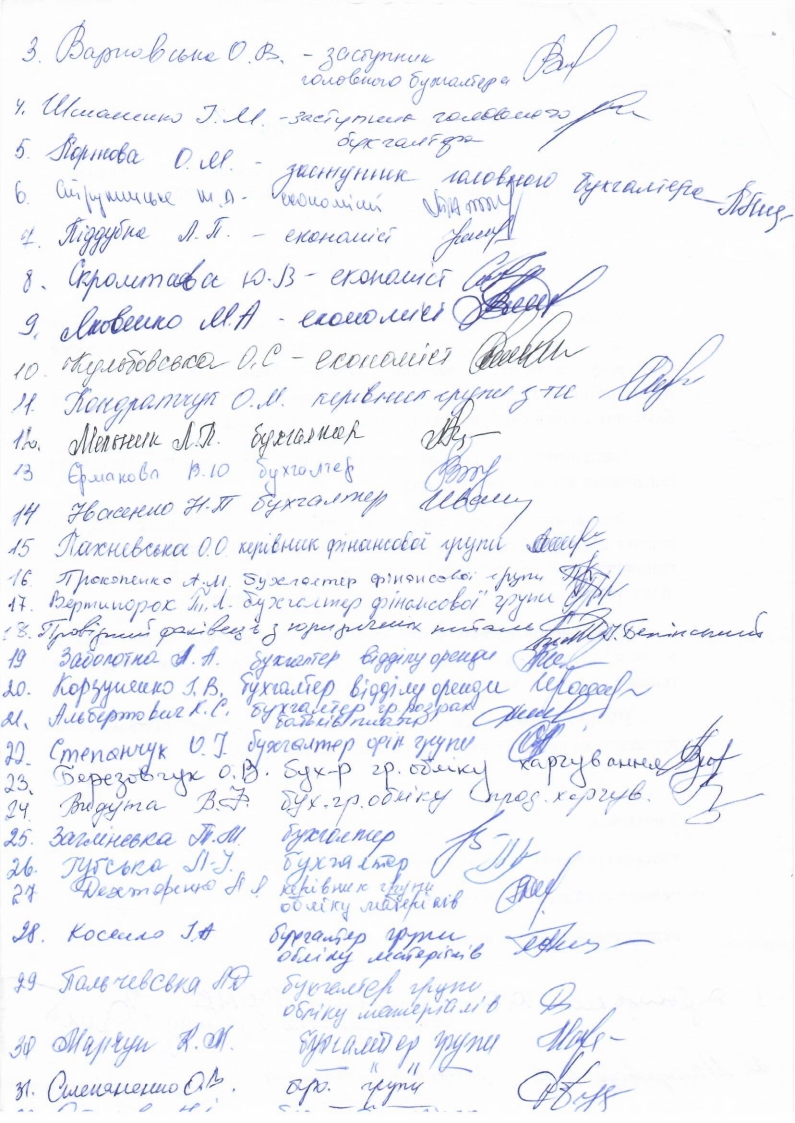 3. Варновська О.В. - заступник
головного бухгалтера
4. Шманенко І.М. - заступник головного
бухгалтера
5. Портова О.М. - заступник головного бухгалтера
6. - економіст
7. Піддубна Л.П. - економіст
8. Ю.В - економіст
9. Яковенко М.А - економіст
10. О.С - економіст
11. Кондратчук О.М. керівник групи з
12. Мельник Л.П. бухгалтер
13 Єрмакова В.Ю бухгалтер
14 Івасенко Н.П бухгалтер
15 Пахневська О.О. керівник фінансової групи
16. Прокопенко А.М. бухгалтер фінансової групи
17. Вертипорох Т.Л. бухгалтер фінансової групи
18. Провідний фахівець з юридичних питань
19 Заболотна А.А. бухгалтер відділу оренди
20. Корзуненко І.В. бухгалтер відділу оренди
21. Альбертович К.С. бухгалтер гр розрах
батьків плати
22. Степанчук О.І. бухгалтер групи
23. Березовчук О.В. бух-р гр. обліку харчування
24. Видута В. бух. гр. обліку прод. харчув.
25. Заглінська Т.М. бухгалтер
26. Губська бухгалтер
27. керівник групи
обліку матеріалів
28. Косенко І.А бухгалтер групи
обліку матеріалів
29 Пальчевська бухгалтер групи
обліку матеріалів
30 Марчук К.М. бухгалтер групи
31. Степаненко О.В. групи